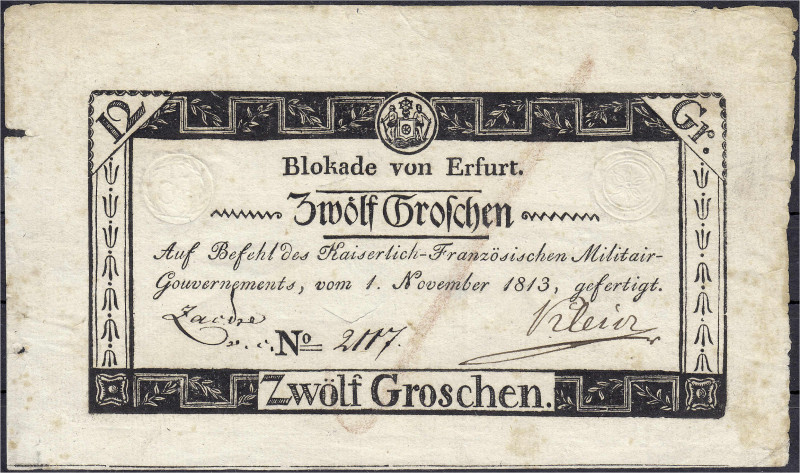 12
Gr.
Blokade von Erfurt.
Zwölf Groschen
Auf Befehl des Kaiserlich-Französischen Militair-
Gouvernements, vom 1. November 1813, gefertigt.
No 2117.
Zwölf Groschen.